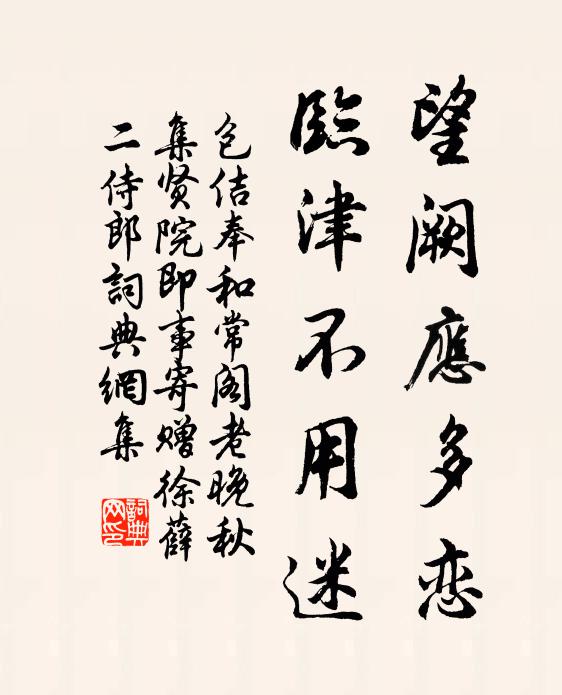 望阙應多恋
臨津不用迷
包佶奉和常阁老晚秋
集贤院即事寄赠徐薛
二侍郎詞典網集
詞典
网印